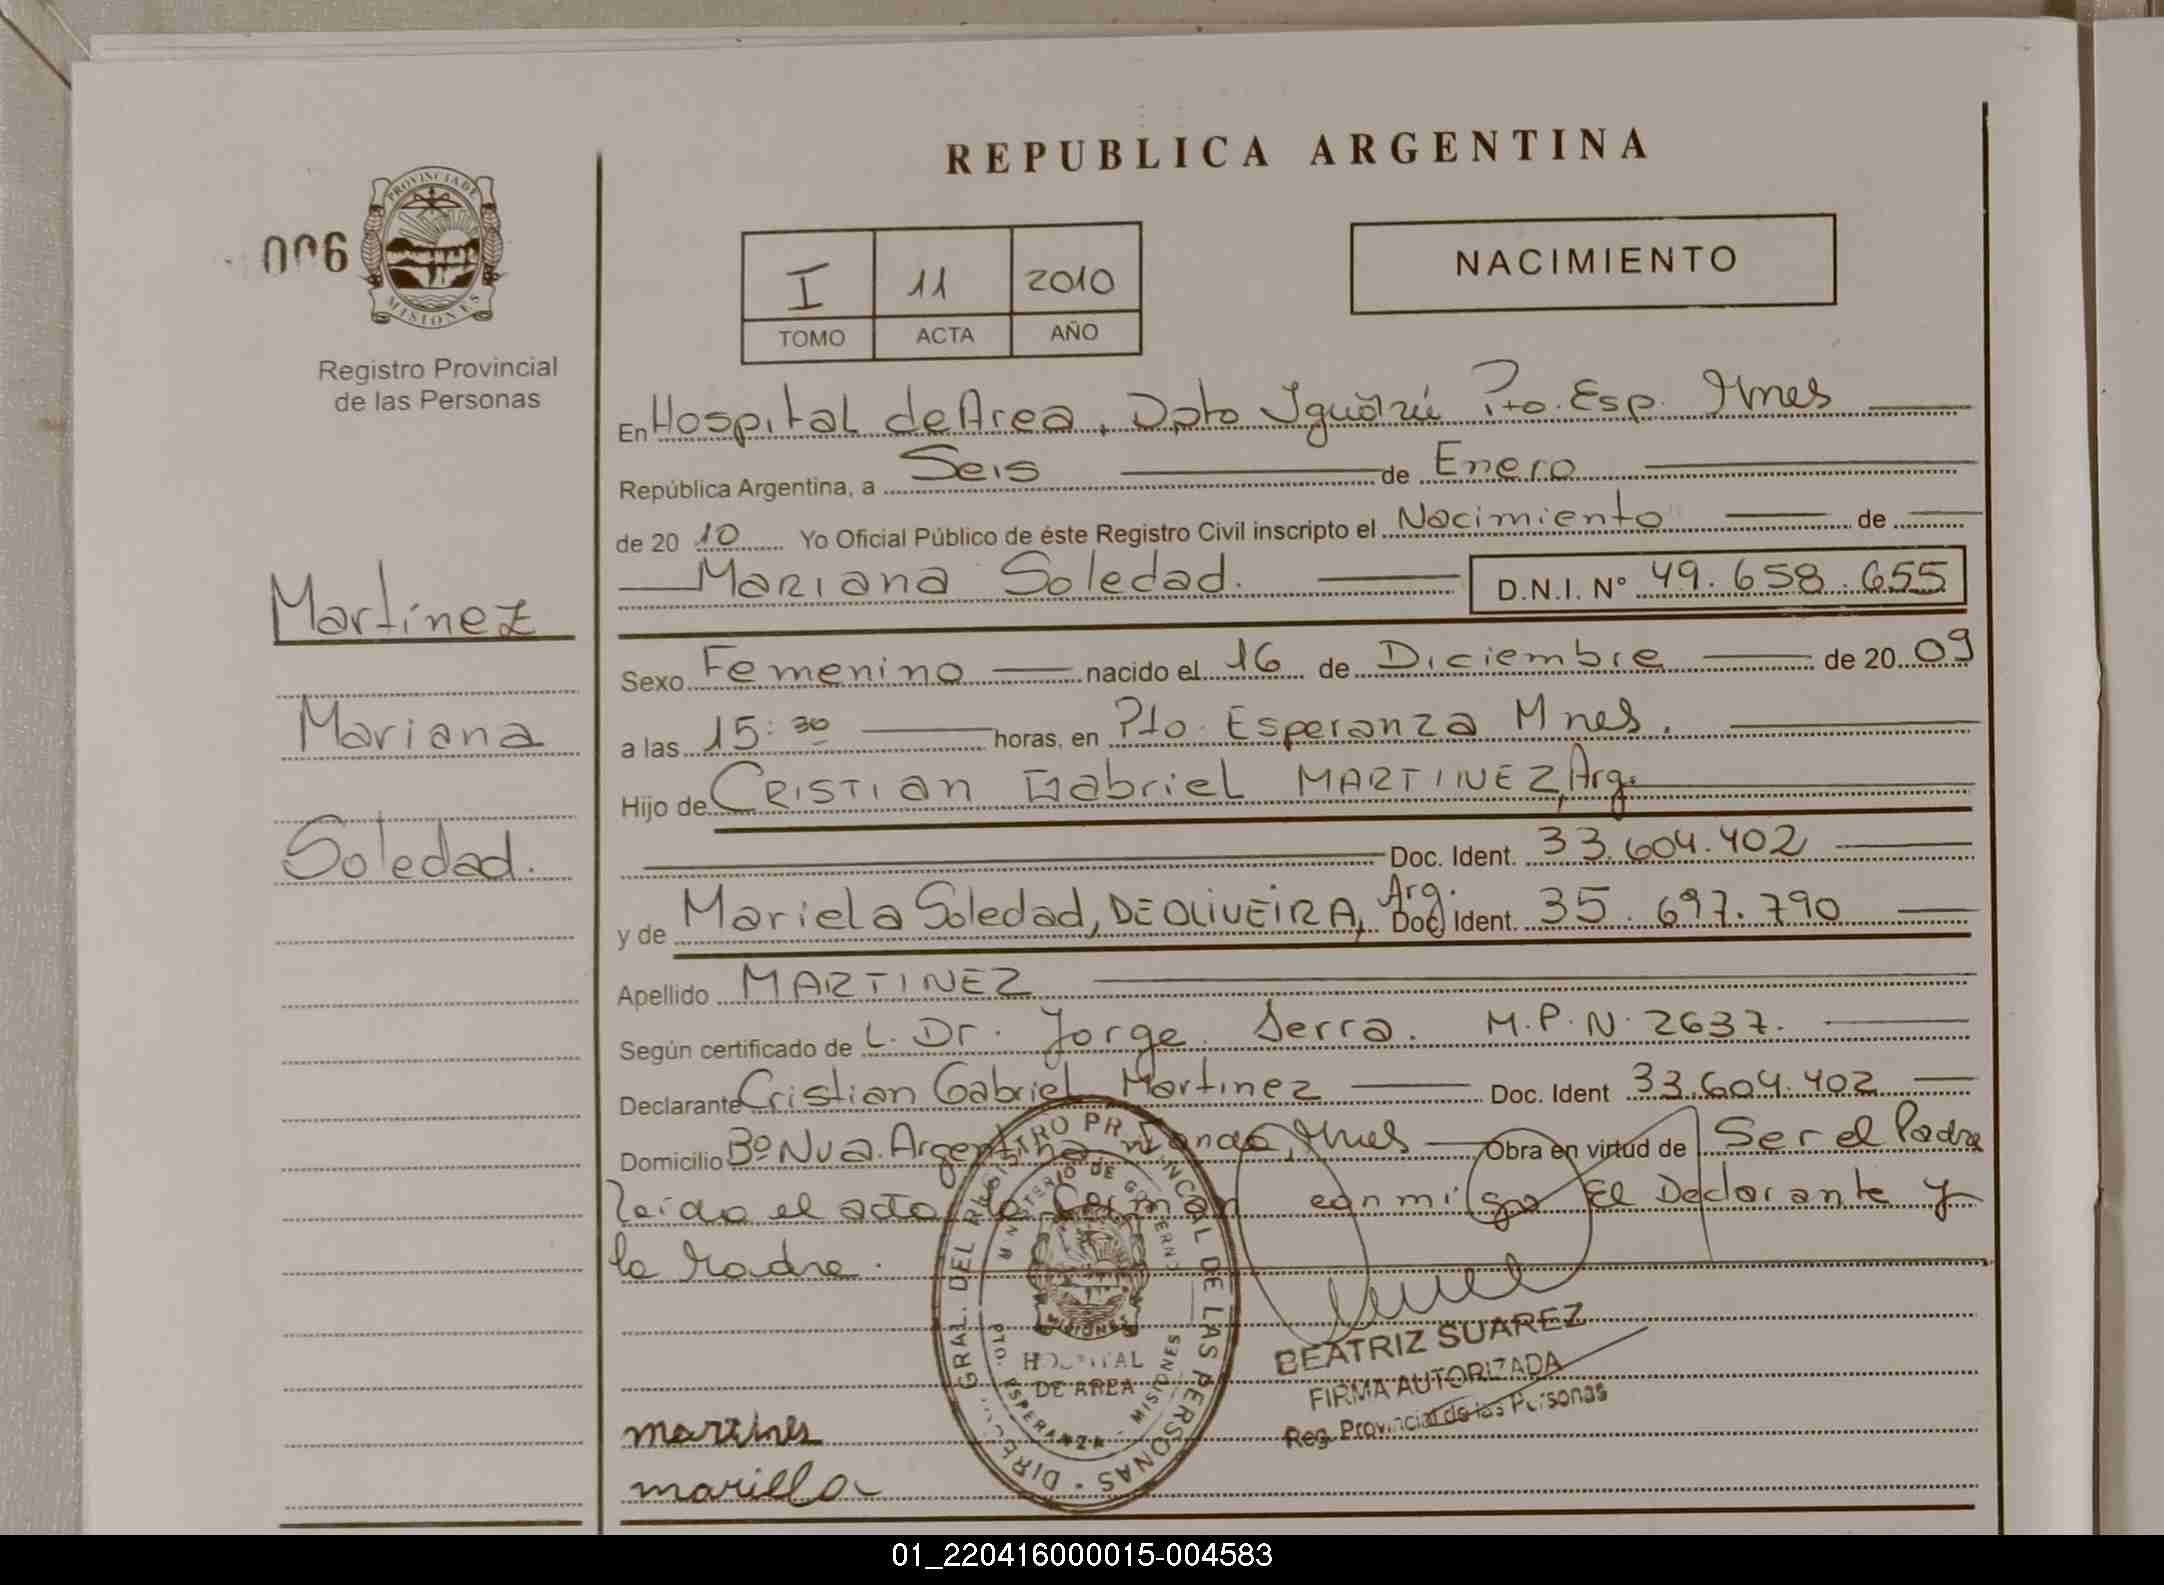 REPUBLICA ARGENTINA
006
PROVINCIA DE
MISIONES
Registro Provincial
de las Personas
I 11 2010
TOMO ACTA AÑO
NACIMIENTO
Martínez
Mariana
Soledad.
En Hospital de Area, Dpto Iguazú Pto. Esp. Mnes
República Argentina, a Seis de Enero
de 20 10 Yo Oficial Público de éste Registro Civil inscripto el Nacimiento de
Mariana Soledad. D.N.I. N° 49.658.655
Sexo Femenino nacido el 16 de Diciembre de 20 09
a las 15:30 horas, en Pto. Esperanza Mnes.
Hijo de Cristian Gabriel MARTINEZ, Arg.
Doc. Ident. 33.604.402
y de Mariela Soledad, DE OLIVEIRA, Arg. Doc Ident. 35.697.790
Apellido MARTINEZ
Según certificado de L. Dr. Jorge Serra. M.P.N. 2637.
Declarante Cristian Gabriel Martinez Doc. Ident 33.604.402
Domicilio Bº Nva. Argentina Wanda, Mnes Obra en virtud de Ser el Padre
leido el acta la Forman conmigo El Declarante y
la Madre.
DIRECC. GRAL. DEL REGISTRO PROVINCIAL DE LAS PERSONAS
MINISTERIO DE GOBIERNO
MISIONES
HOSPITAL
DE AREA
PTO. ESPERANZA - MISIONES
BEATRIZ SUAREZ
FIRMA AUTORIZADA
Reg. Provincial de las Personas
01_220416000015-004583